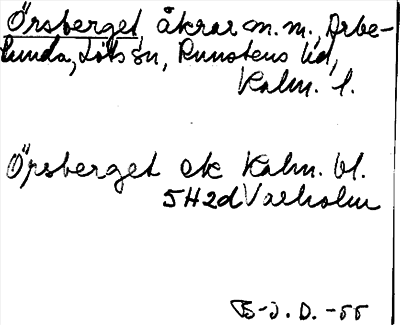 Örsberget, åkrar m.m., Arbe-
lunda, Löts sn, Runstens hd,
Kalm. l.
Örsberget ek Kalm. bl.
5H2d Vaeholm
B-J. D. -55